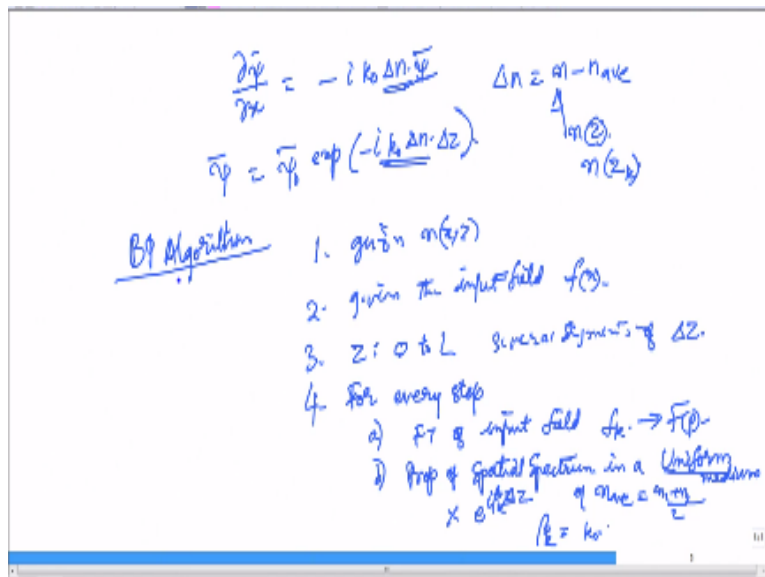 ∂ψ̄/∂x = - i k₀ Δn·ψ̄
Δn = n - n ave
n(z).
n(z k)
ψ̄ = ψ̄₀ exp(-i k₀ Δn·Δz).
BP Algorithm
1. given n(x,z)
2. given the input field f(x).
3. z: 0 to L several segments of Δz.
4. For every step
a) FT of input field f k. → F̄(p).
b) Prop of spatial spectrum in a Uniform medium
× e^ Δz of n ave = n₁+n₂/2
= k₀